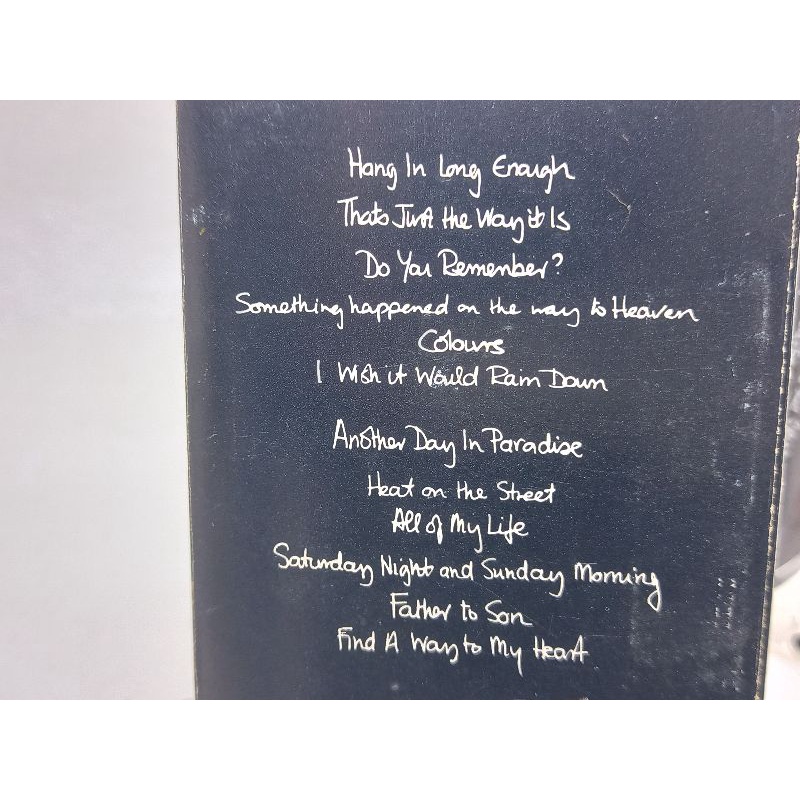 Hang In Long Enough
Thats Just the Way it Is
Do You Remember?
Something happened on the way to Heaven
Colours
I Wish it Would Rain Down
Another Day In Paradise
Heat on the Street
All of My Life
Saturday Night and Sunday Morning
Father to Son
Find A Way to My Heart